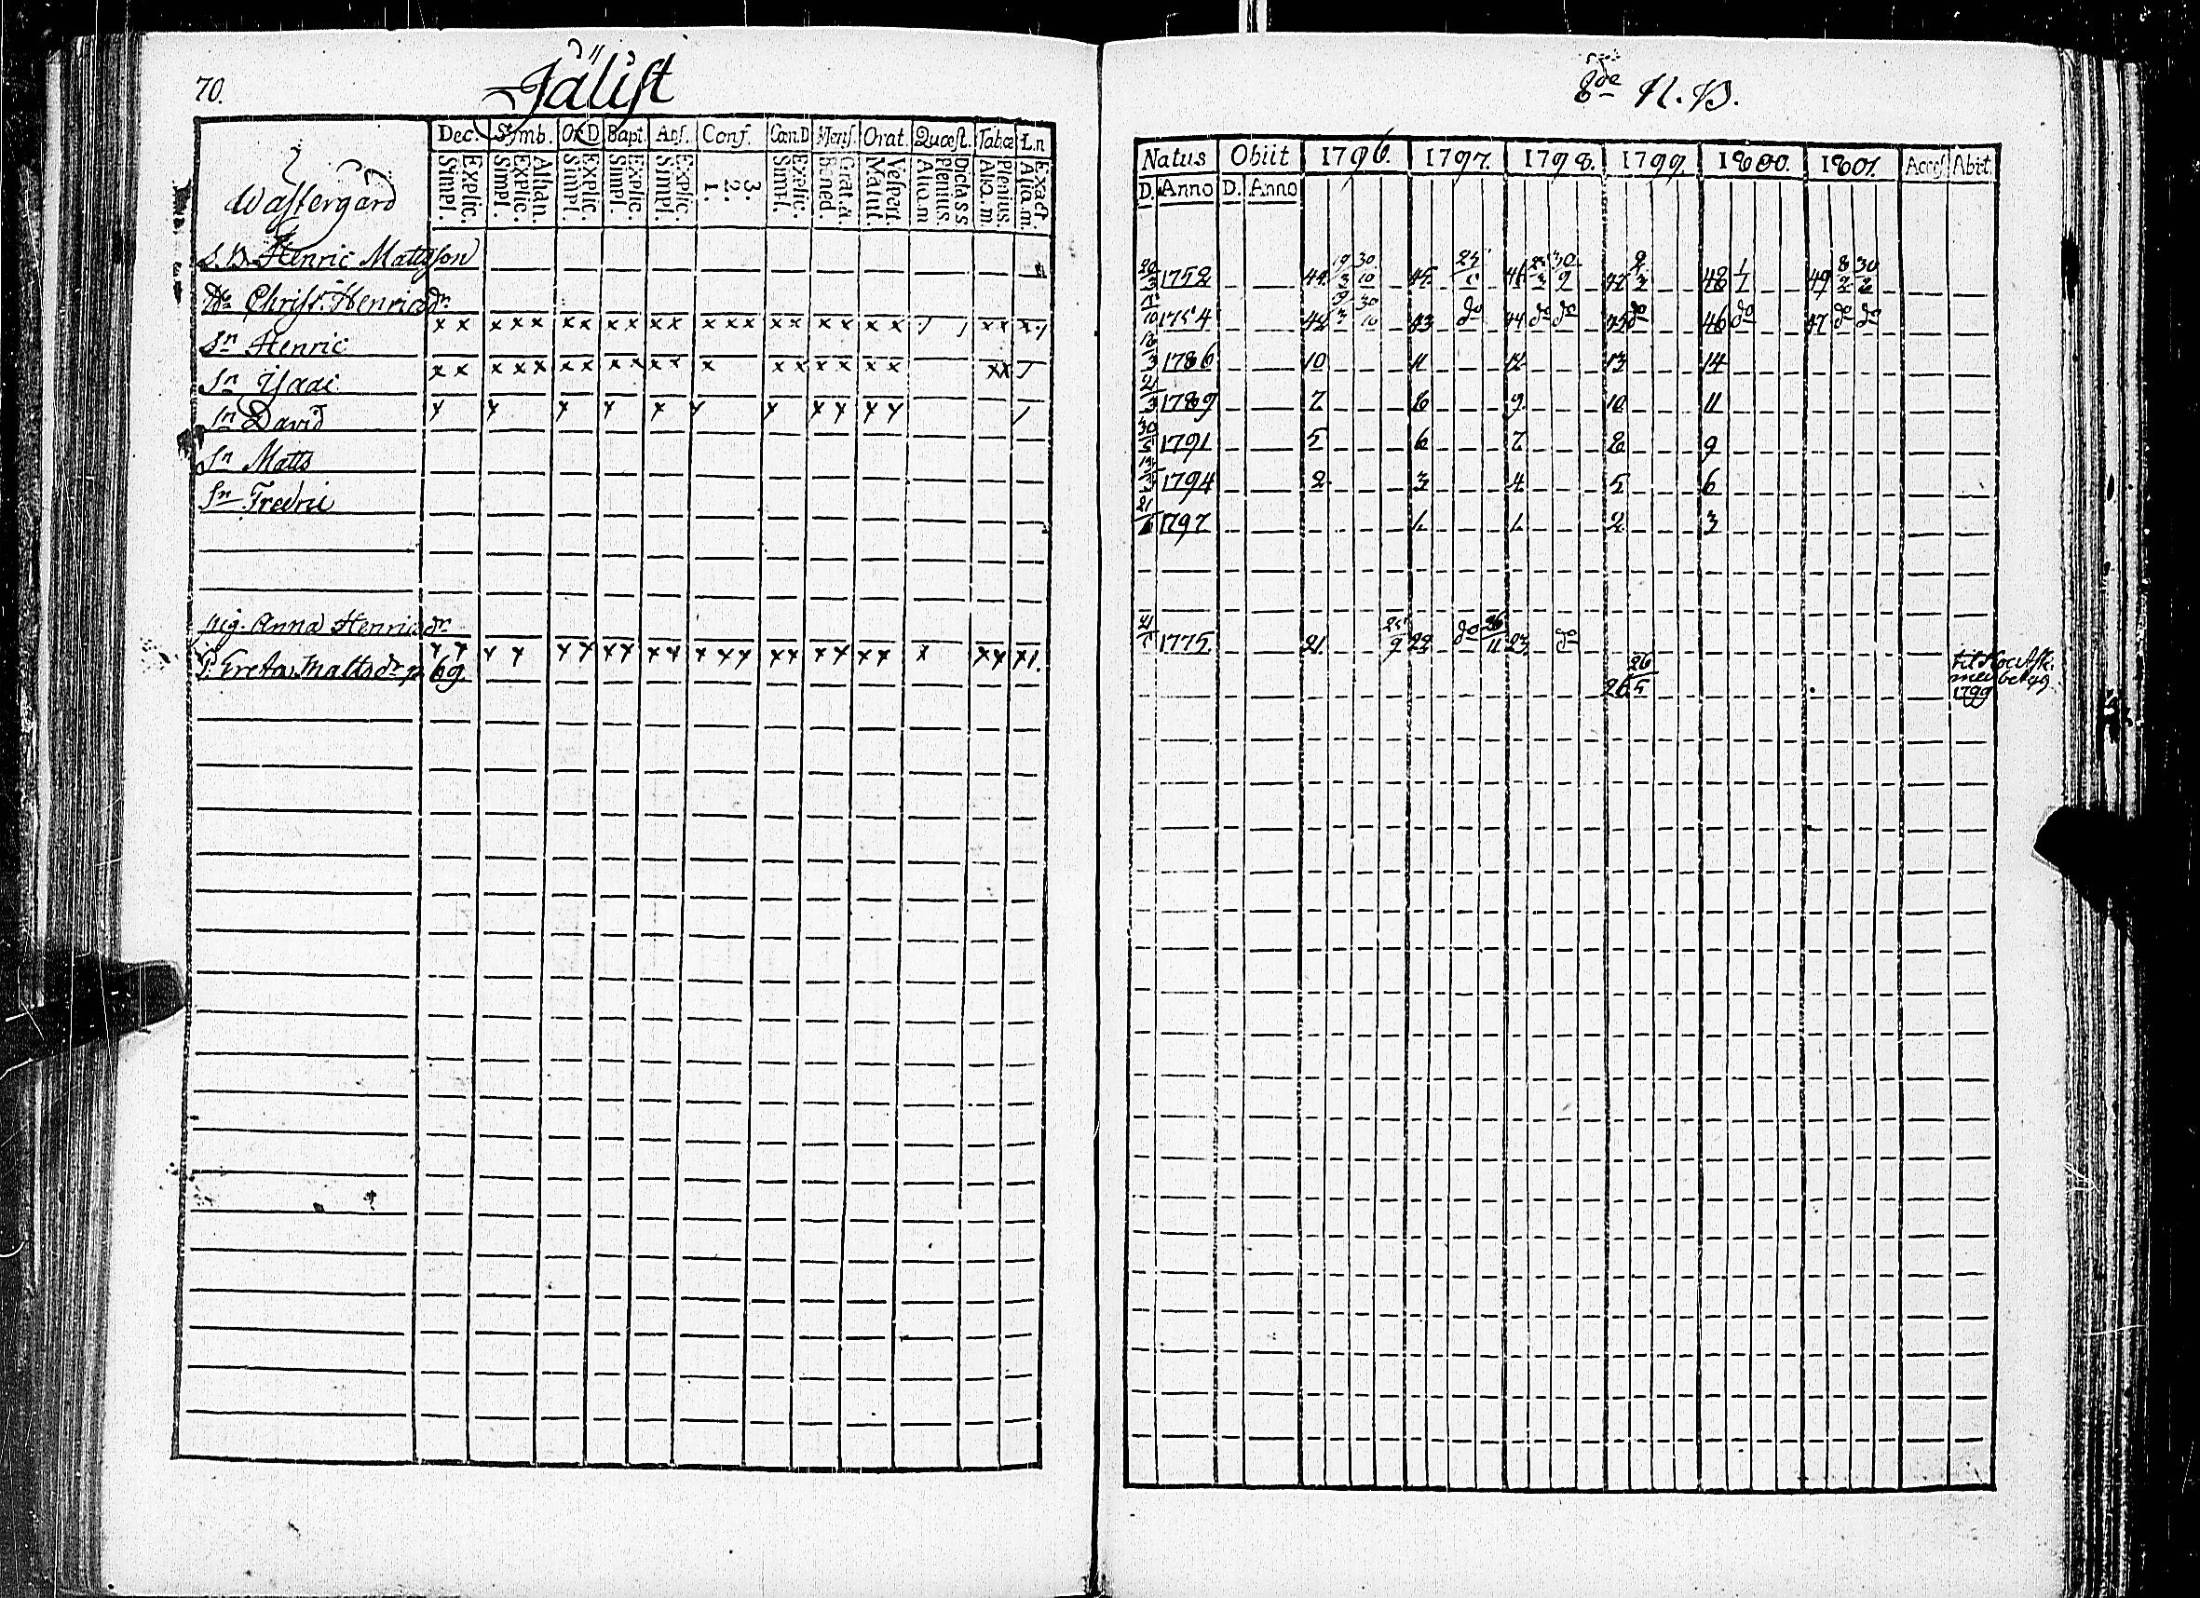 70.
Jälist
Dec. Symb. Or.D Bapt. Abs. Conf. Can.D Mens. Orat. Quæst. Tabæ L.n
Wästergård
Explic. Simpl. Athan. Explic. Simpl. Explic. Simpl. Explic. Simpl. Explic. Simpl. 3. 2. 1. Explic. Simpl. Grat.a. Bened. Vespert. Matut. Dicta S S Plenius. Aliq.m Plenius. Aliq.m. Exact. Aliq.m.
S.B. Henric Mattsson
Hu Christ. Henricsdr.
x x x x x x x x x x x x x x x x x x x x x x
Sn Henric
x x x x x x x x x x x x x x x x x x x x
Sn Isaac
x x x x x x x x x x x
Sn David
Sn Matts
Sn Fredric
pig. Anna Henricsdr.
x x x x x x x x x x x x x x x x x x x x x x x
P. Greta Mattsdr p. 69
8de N.B.
Natus Obiit 1796. 1797. 1798. 1799. 1800. 1801. Access. Abit.
D. Anno D. Anno
20/3 1752 44 19/3 30/10 45 46 30/9 47 2/3 48 1/1 49 8/2 30/2
1754 42 19/3 30/10 43 do 44 do do 45 do 46 do 47 do do
18/3 1786 10 11 12 13 14
21/3 1789 7 8 9 10 11
30/5 1791 5 6 7 8 9
1794 2 3 4 5 6
21 1797 1 1 2 3
21 1775. 21 25/9 22 do 26/11 23 do
26/5
med bet 49
1799